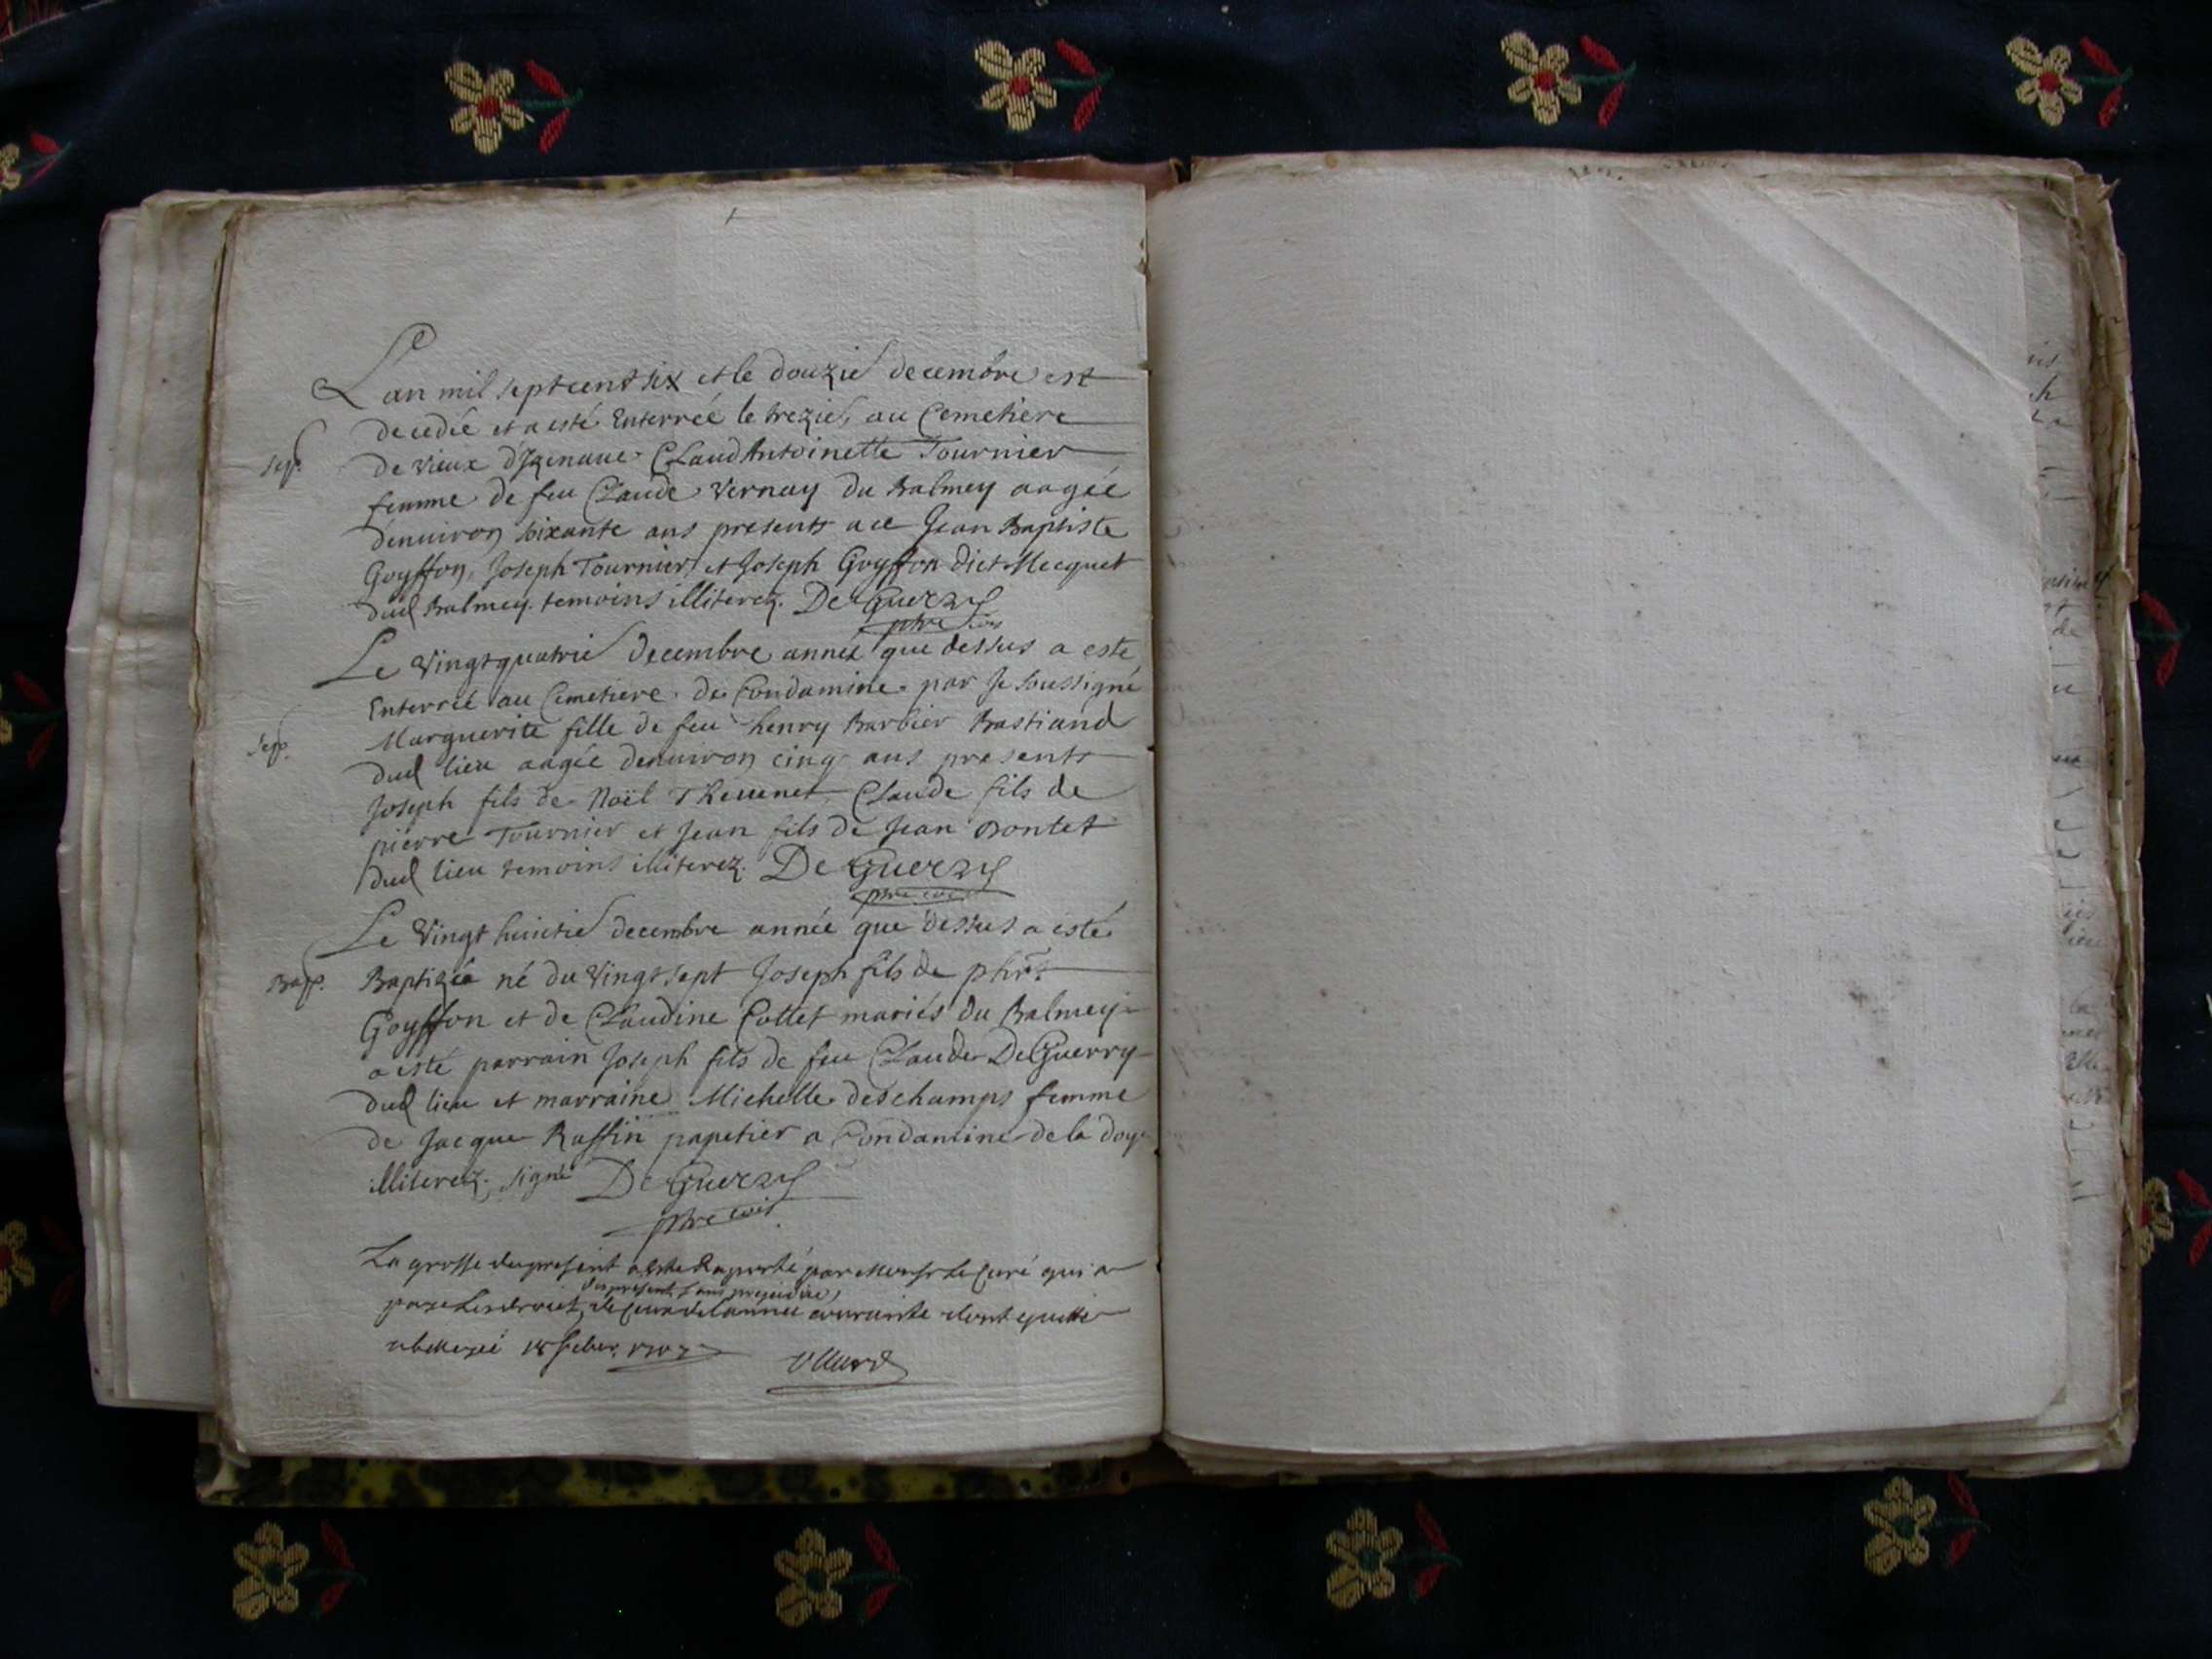 L'an mil sept cent six et le douzie decembre est
decedée et a esté Enterrée le trezie, au Cemetiere
Sep. de vieux d'Izenaue Claud Antoinette Tournier
femme de feu Claude Vernay du Balmey aagée
d'enuiron soixante ans presents a ce Jean Baptiste
Goyffon, Joseph Tournier et Joseph Goyffon dict Mecquet
dud Balmey temoins illiterez. De Guerry
ptre curé
Le Vingt quatrie decembre année que dessus a esté
Enterrée au Cemetiere de Condamine par Je soussigné
Marguerite fille de feu henry Barbier Bastiand
Sep. dud lieu aagée denuiron cinq ans presents
Joseph fils de Noël Theuenet Claude fils de
pierre Tournier et Jean fils de Jean Bontet
dud lieu temoins illiterez. De Guerry
ptre curé
Le Vingt huictie decembre année que dessus a esté
Bap. Baptizéa né du Vingt sept Joseph fils de phr̃t
Goyffon et de Claudine Cottet mariés du Balmey
a esté parrain Joseph fils de feu Claude De Guerry
dud lieu et marraine Michelle deschamps femme
de Jacque Ruffin papetier a Condamine de la doye
illiterez. signé De Guerry
ptre curé
La grosse du present a este Raporté par Monsr le Curé qui a
du present sans prejudice
paye les droict, de ceux de l'annee courante dont quitte
18 feber. 1707